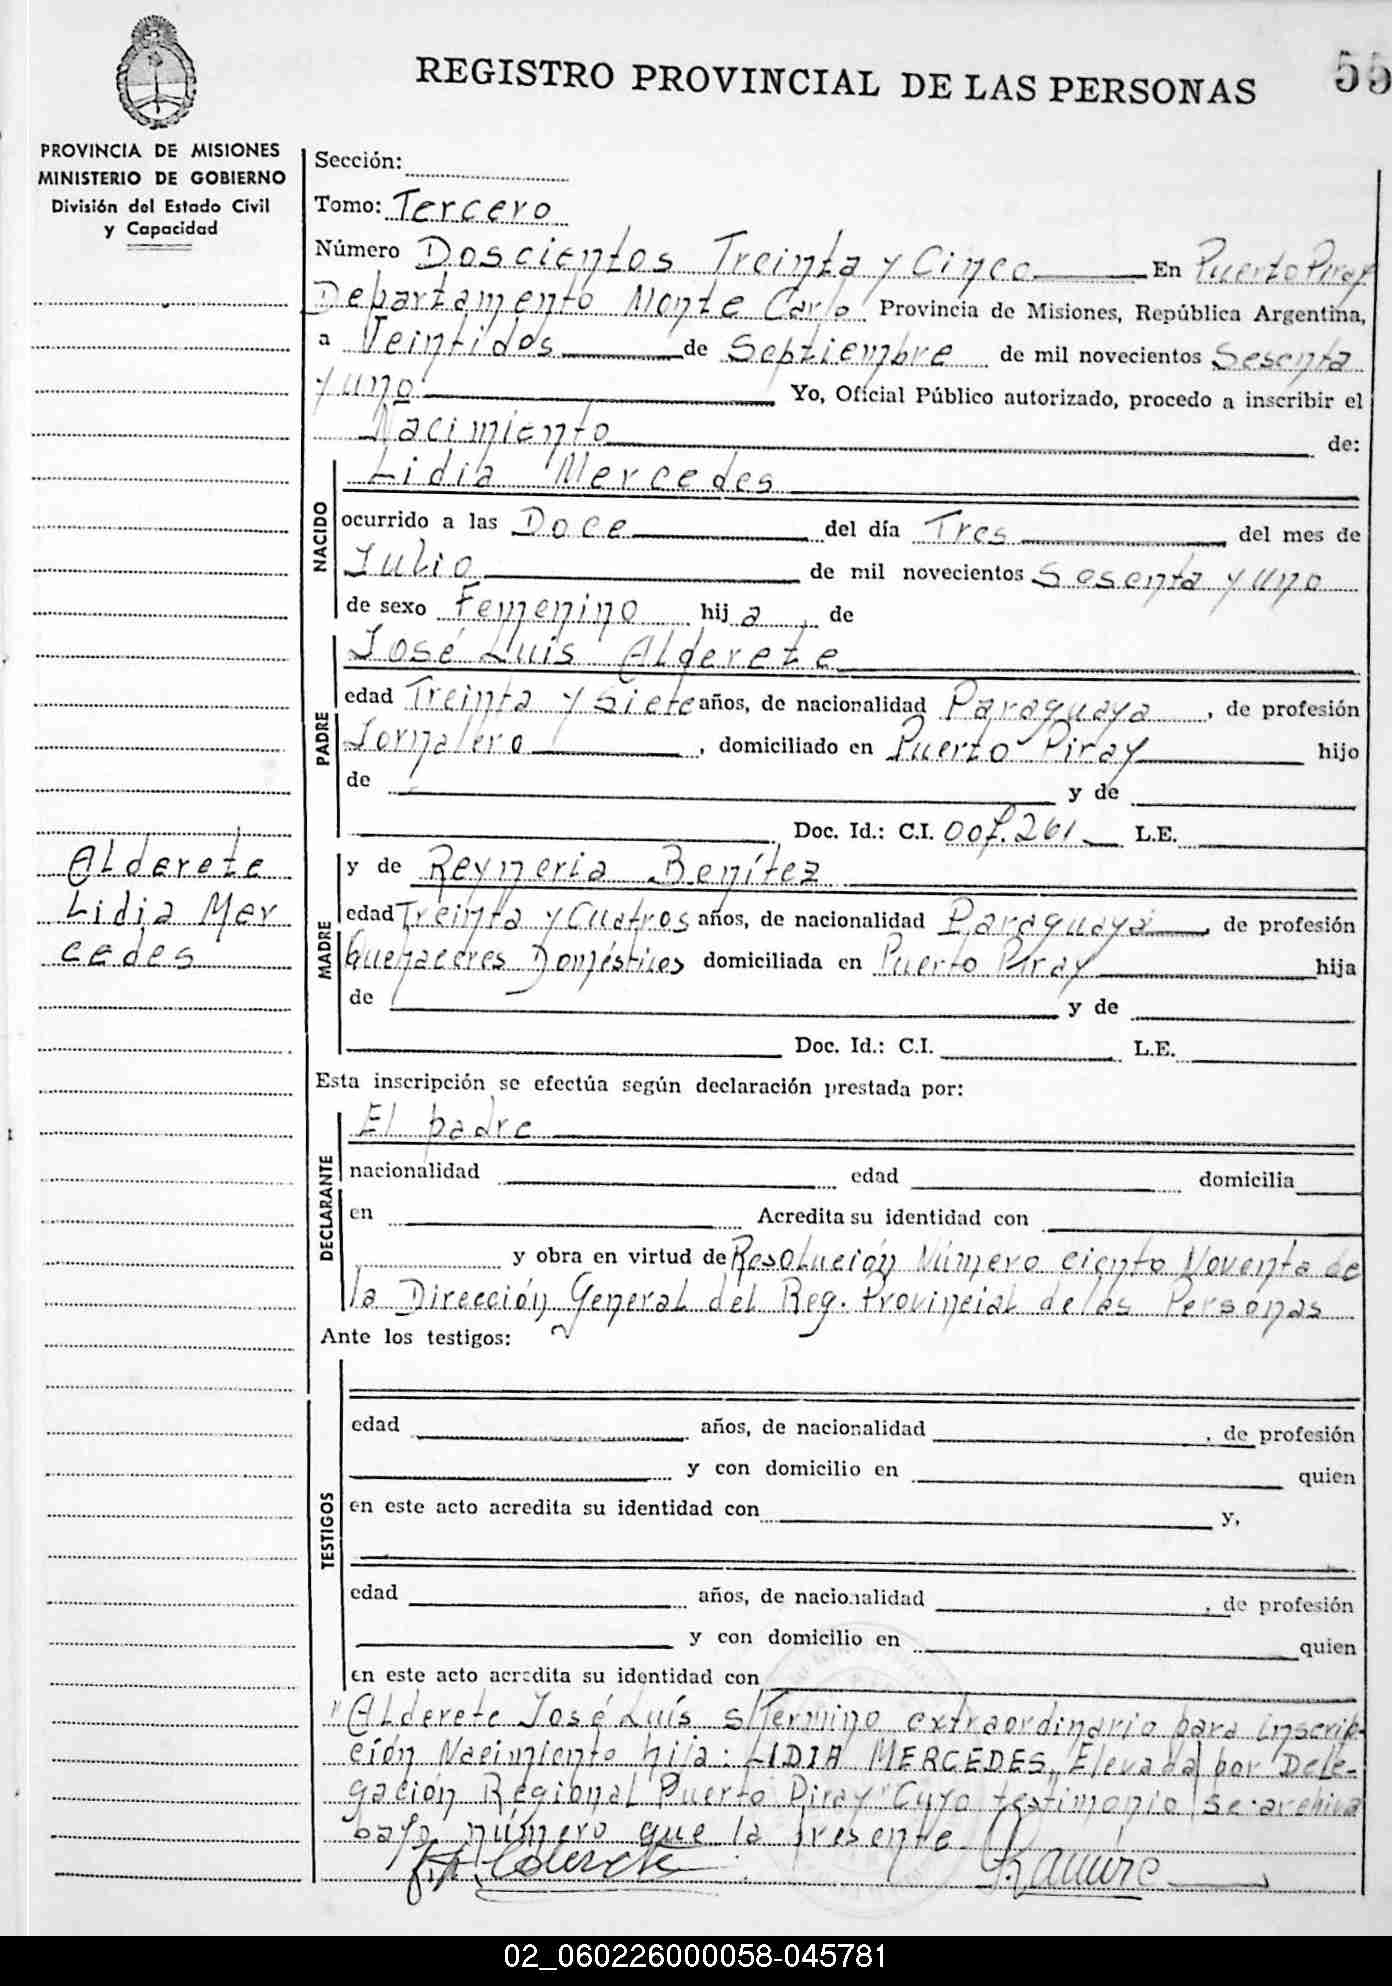 REGISTRO PROVINCIAL DE LAS PERSONAS
55
PROVINCIA DE MISIONES
MINISTERIO DE GOBIERNO
División del Estado Civil
y Capacidad
Sección:
Tomo: Tercero
Número Doscientos Treinta y Cinco En Puerto Piray
Departamento Monte Carlo Provincia de Misiones, República Argentina,
a Veintidos de Septiembre de mil novecientos Sesenta
y uno Yo, Oficial Público autorizado, procedo a inscribir el
Nacimiento de:
NACIDO
Lidia Mercedes
ocurrido a las Doce del día Tres del mes de
Julio de mil novecientos Sesenta y uno
de sexo Femenino hija de
PADRE
José Luis Alderete
edad Treinta y Siete años, de nacionalidad Paraguaya, de profesión
Jornalero, domiciliado en Puerto Piray hijo
de y de
Doc. Id.: C.I. 007.261 L.E.
Alderete
Lidia Mer
cedes
MADRE
y de Reyneria Benítez
edad Treinta y Cuatros años, de nacionalidad Paraguaya, de profesión
Quehaceres Domésticos domiciliada en Puerto Piray hija
de y de
Doc. Id.: C.I. L.E.
Esta inscripción se efectúa según declaración prestada por:
DECLARANTE
El padre
nacionalidad edad domicilia
en Acredita su identidad con
y obra en virtud de Resolución Número ciento Noventa de
la Dirección General del Reg. Provincial de las Personas
Ante los testigos:
TESTIGOS
edad años, de nacionalidad , de profesión
y con domicilio en quien
en este acto acredita su identidad con y,
edad años, de nacionalidad , de profesión
y con domicilio en quien
en este acto acredita su identidad con
"Alderete José Luís s/Termino extraordinario para inscrip-
ción Nacimiento hija: LIDIA MERCEDES, Elevada por Dele-
gación Regional Puerto Piray" Cuyo testimonio se archiva
bajo número que la presente
Alderete
Ramire
02_060226000058-045781